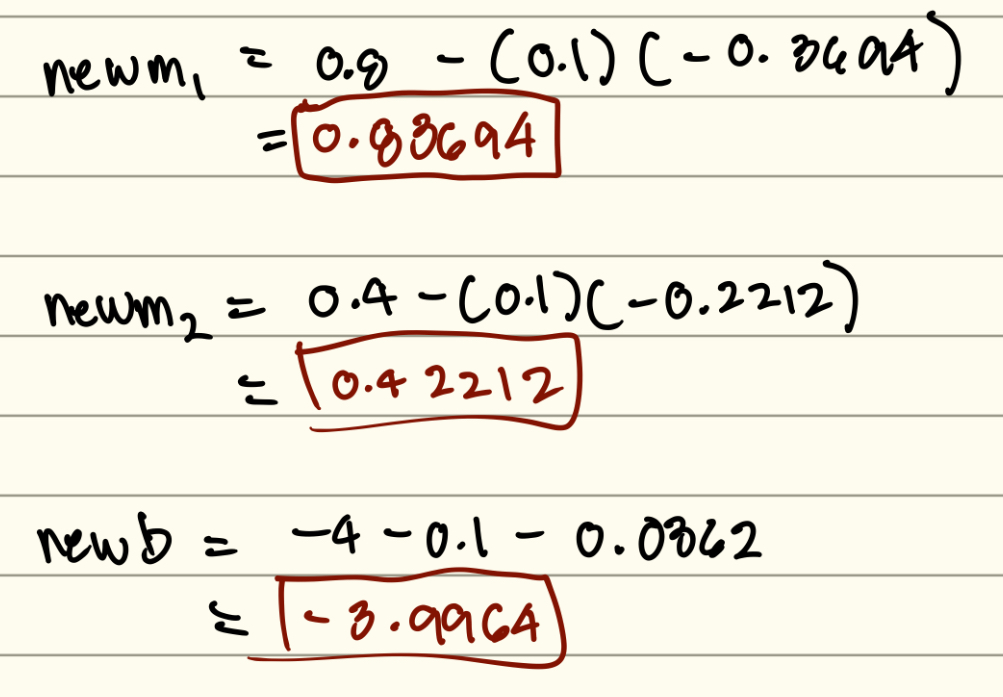 newm₁ = 0.8 - (0.1) (-0.3694)
= 0.83694
newm₂ = 0.4 - (0.1)(-0.2212)
= 0.42212
new b = -4 - 0.1 - 0.0362
= -3.9964